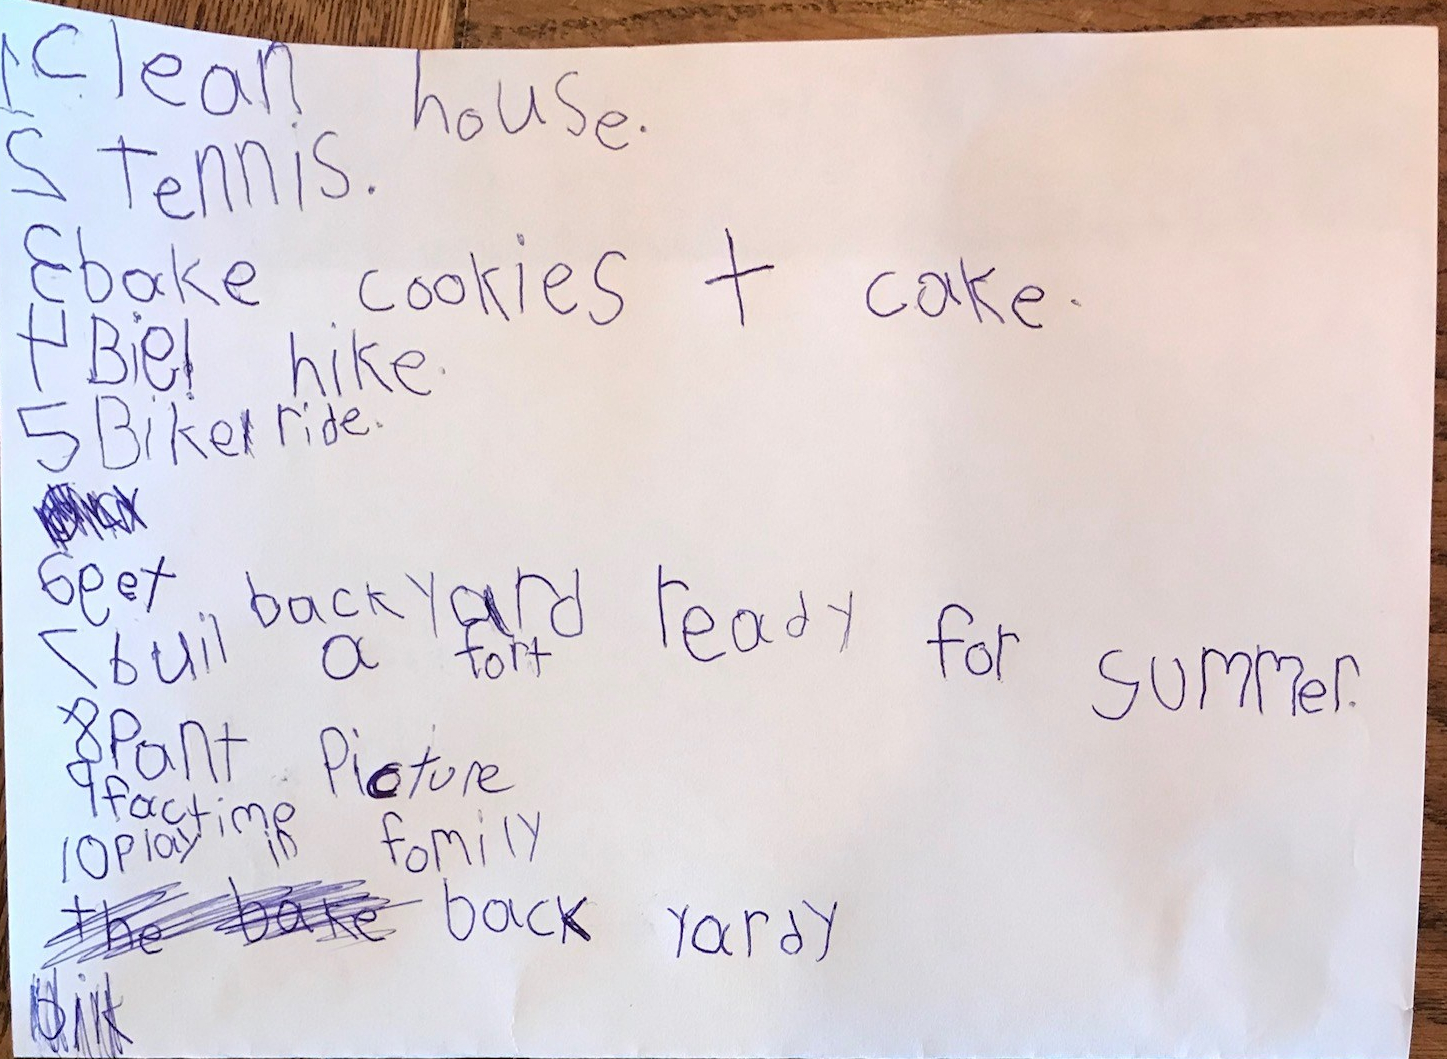 1 Clean house.
2 Tennis.
3 bake cookies + cake.
4 Biel hike.
5 Bike ride.
6 get backyard ready for summer.
7 buil a fort
8 Pant Picture
9 factime family
10 Play in
the bake back yardy